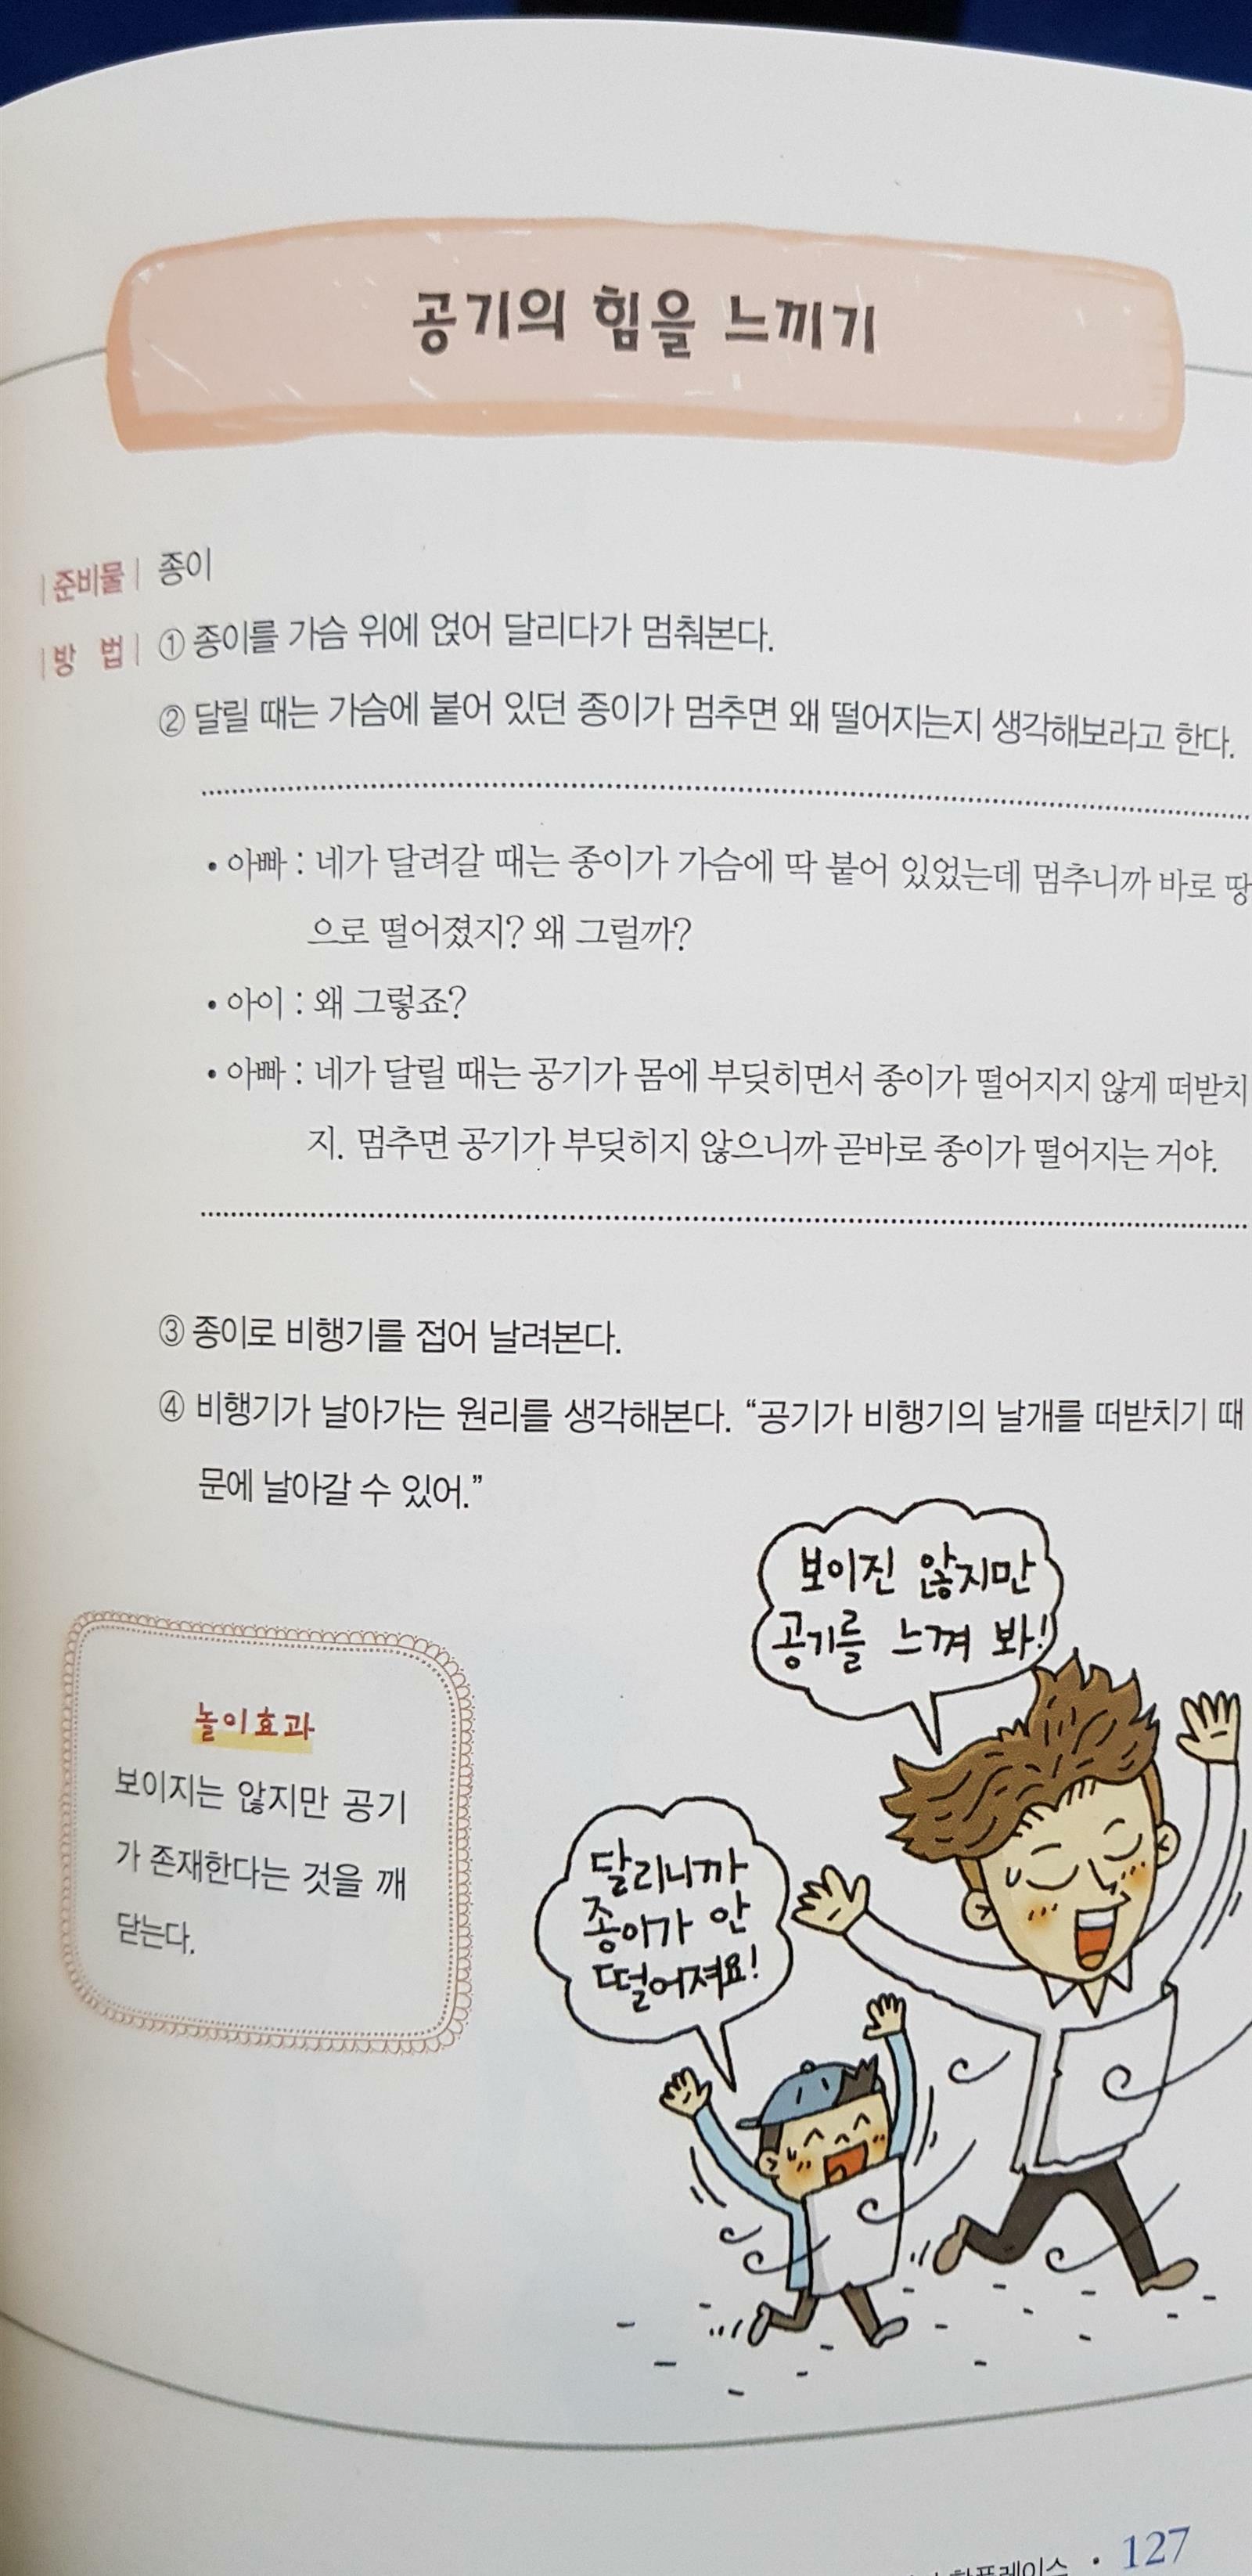 공기의 힘을 느끼기
|준비물| 종이
|방 법| ① 종이를 가슴 위에 얹어 달리다가 멈춰본다.
② 달릴 때는 가슴에 붙어 있던 종이가 멈추면 왜 떨어지는지 생각해보라고 한다.
• 아빠 : 네가 달려갈 때는 종이가 가슴에 딱 붙어 있었는데 멈추니까 바로 땅
으로 떨어졌지? 왜 그럴까?
• 아이 : 왜 그렇죠?
• 아빠 : 네가 달릴 때는 공기가 몸에 부딪히면서 종이가 떨어지지 않게 떠받치
지. 멈추면 공기가 부딪히지 않으니까 곧바로 종이가 떨어지는 거야.
③ 종이로 비행기를 접어 날려본다.
④ 비행기가 날아가는 원리를 생각해본다. “공기가 비행기의 날개를 떠받치기 때
문에 날아갈 수 있어.”
보이진 않지만
공기를 느껴 봐!
놀이효과
보이지는 않지만 공기
가 존재한다는 것을 깨
닫는다.
달리니까
종이가 안
떨어져요!
• 127